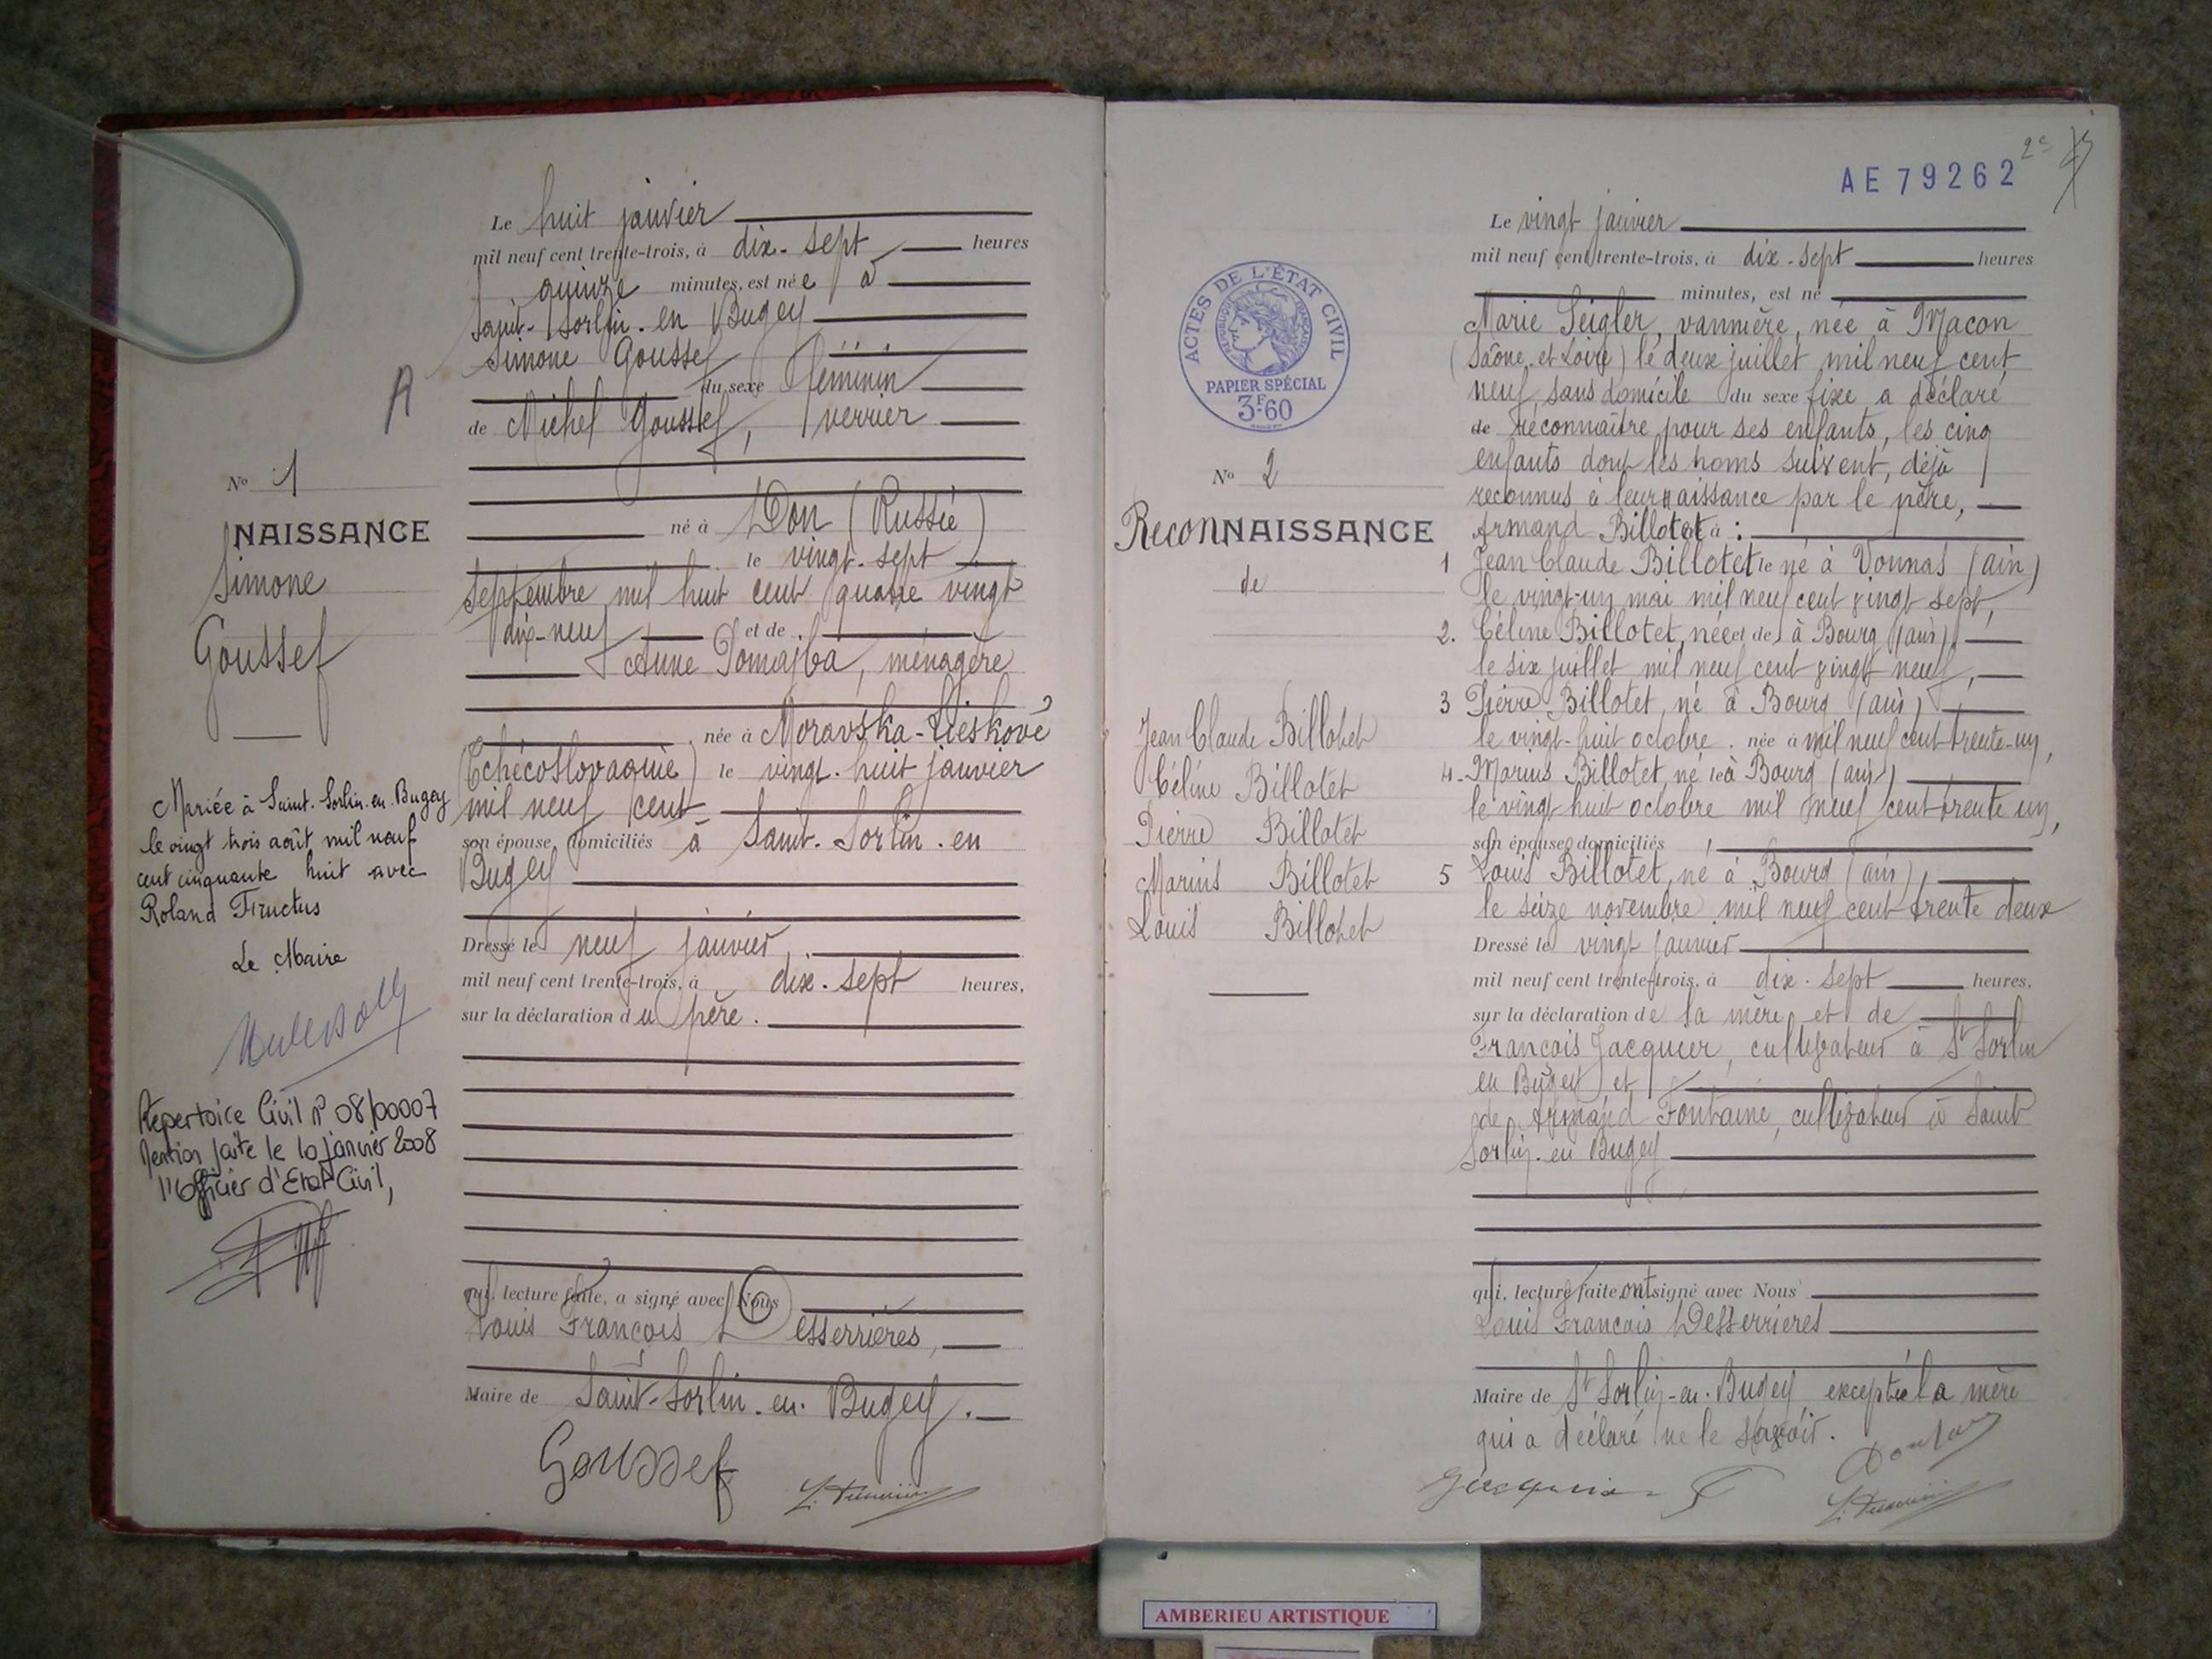 Le huit janvier
mil neuf cent trente-trois, à dix-sept heures
quinze minutes, est née à
Saint-Sorlin-en Bugey
Simone Goussef
du sexe féminin
de Michel Goussef, verrier
né à Don (Russie)
le vingt-sept
septembre mil huit cent quatre vingt
dix-neuf et de
Anne Pomajba, ménagère
née à Moravska-Lieskové
(Tchécoslovaquie) le vingt-huit janvier
mil neuf cent
son épouse, domiciliés à Saint-Sorlin-en
Bugey
Dressé le neuf janvier
mil neuf cent trente-trois, à dix-sept heures,
sur la déclaration du père.
qui, lecture faite, a signé avec Nous
Louis François Desserrières,
Maire de Saint-Sorlin-en-Bugey.
Goussef
A
No 1
NAISSANCE
Simone
Goussef
Mariée à Saint-Sorlin-en-Bugey
le vingt trois août mil neuf
cent cinquante huit avec
Roland Fructus
Le Maire
Répertoire Civil n° 08/00007
Mention faite le 10 janvier 2008
l'Officier d'Etat Civil,
AE 79262
2e
ACTES DE L'ÉTAT CIVIL
RÉPUBLIQUE FRANÇAISE
PAPIER SPÉCIAL
3F60
No 2
ReconNAISSANCE
de
Jean Claude Billotet
Céline Billotet
Pierre Billotet
Marius Billotet
Louis Billotet
Le vingt janvier
mil neuf cent trente-trois, à dix-sept heures
minutes, est né
Marie Seigler, vannière, née à Macon
(Saône-et-Loire) le deux juillet mil neuf cent
neuf sans domicile du sexe fixe a déclaré
de reconnaître pour ses enfants, les cinq
enfants dont les noms suivent, déjà
reconnus à leur naissance par le père,
Armand Billotet à :
1 Jean Claude Billotet le né à Vonnas (ain)
le vingt-un mai mil neuf cent vingt sept,
2. Céline Billotet, née et de à Bourg (ain)
le six juillet mil neuf cent vingt neuf,
3 Pierre Billotet, né à Bourg (ain)
le vingt-huit octobre née à mil neuf cent trente-un,
4- Marius Billotet, né le à Bourg (ain)
le vingt huit octobre mil neuf cent trente un,
son épouse, domiciliés
5 Louis Billotet, né à Bourg (ain),
le seize novembre mil neuf cent trente deux
Dressé le vingt janvier
mil neuf cent trente-trois, à dix-sept heures,
sur la déclaration de la mère et de
François Jacquier, cultivateur à St Sorlin
en Bugey et
de Armand Fontaine, cultivateur à Saint
Sorlin-en Bugey
qui, lecture faite, ont signé avec Nous
Louis François Desserrières
Maire de St Sorlin-en-Bugey, exceptée la mère
qui a déclaré ne le savoir.
AMBERIEU ARTISTIQUE